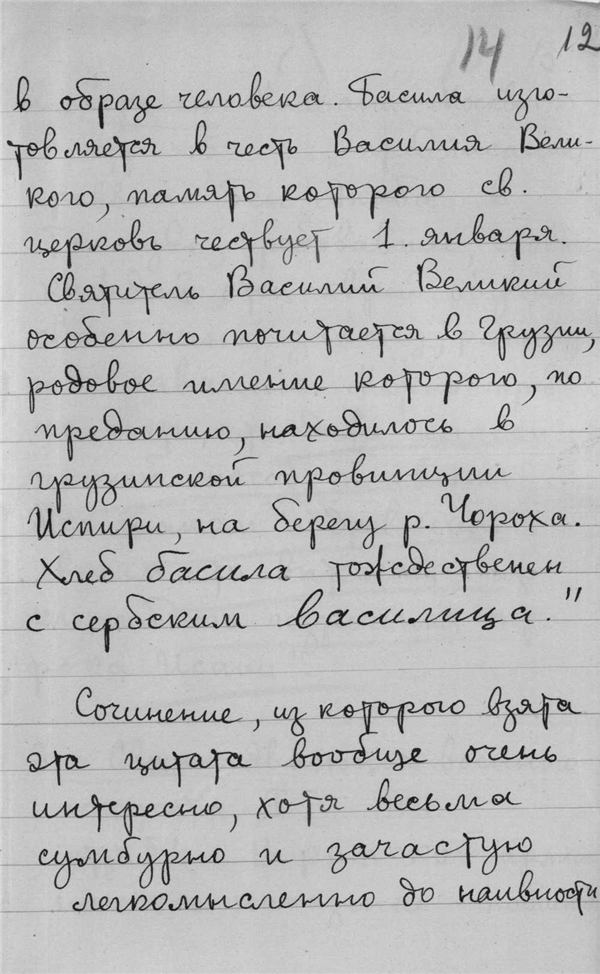 14 12
в образе человека. Басила изго-
товляется в честь Василия Вели-
кого, память которого св.
церковь чествует 1. января.
Святитель Василий Великий
особенно почитается в Грузии,
родовое имение которого, по
преданию, находилось в
грузинской провинции
Испири, на берегу р. Чороха.
Хлеб басила тождественен
с сербским василица."
Сочинение, из которого взята
эта цитата вообще очень
интересно, хотя весьма
сумбурно и зачастую
легкомысленно до наивности